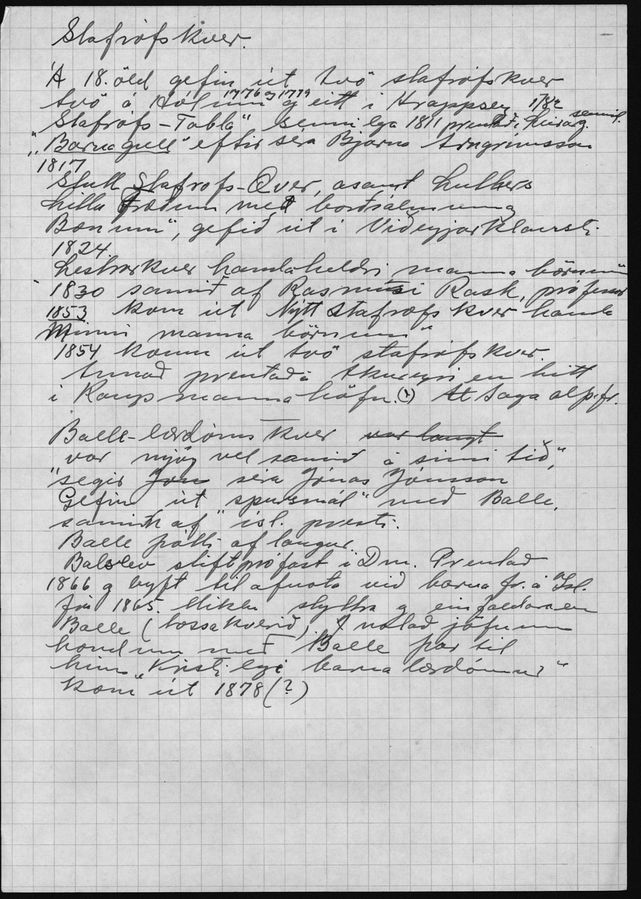 Stafrófskver.
Á 18. öld gefin út tvö stafrófskver
tvö á Hólum 1776 og 1779 og eitt í Hrappsey 1782
Stafrófs-Tabla" sennilega 1811 prentað í Leirárg. sennil.
"Barnagull" eftir séra Bjarna Arngrímsson
1817
Stutt Stafrofs-Qver, ásamt Luthers
litla Frædum með bordsálmum og
Bænum", gefið út í Viðeyjarklaustri
1824.
Lestrarkver handa heldri manna börnum
1830 samið af Rasmusi Rask, prófessor
1853 kom út Nýtt stafrofskver handa
Minni manna börnum"
1854 komu út tvö stafrófskver.
Annað prentað á Akureyri en hitt
í Kaupmannahöfn. Saga alþ.fr.
Balle-lærdómskver var langt
"var mjög vel samið á sinni tíð",
segir Jón séra Jónas Jónsson
Gefin út "spursmál" með Balle,
samin af ísl. presti.
Balle þótti of langur.
Balslev stiftprófast í Dm. Prentað
1866 og leyft til afnota við barnafr. á Ísl.
fyrir 1865. Miklu styttra og einfaldara en
Balle (tossakverið), notað jöfnum
höndum með Balle þar til
hins "Kristilegi barnalærdómur"
kom út 1878 (?)